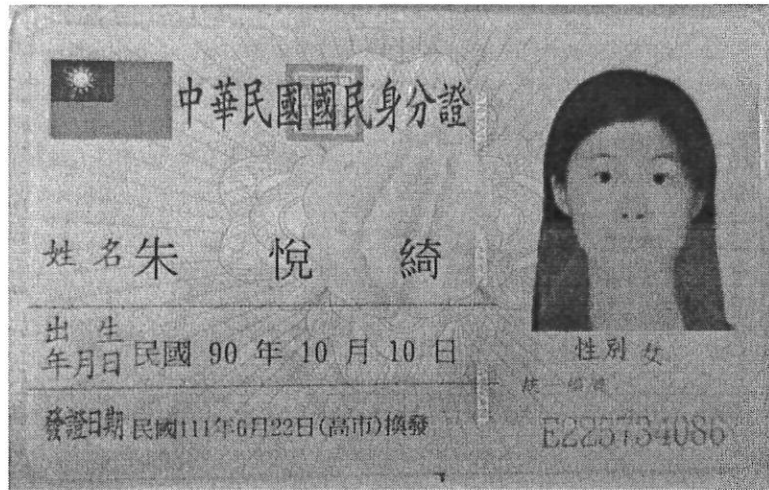 中華民國國民身分證
姓名 朱悅綺
出生年月日 民國 90 年 10 月 10 日
性別 女
發證日期 民國111年6月22日(高市)換發
E225734086